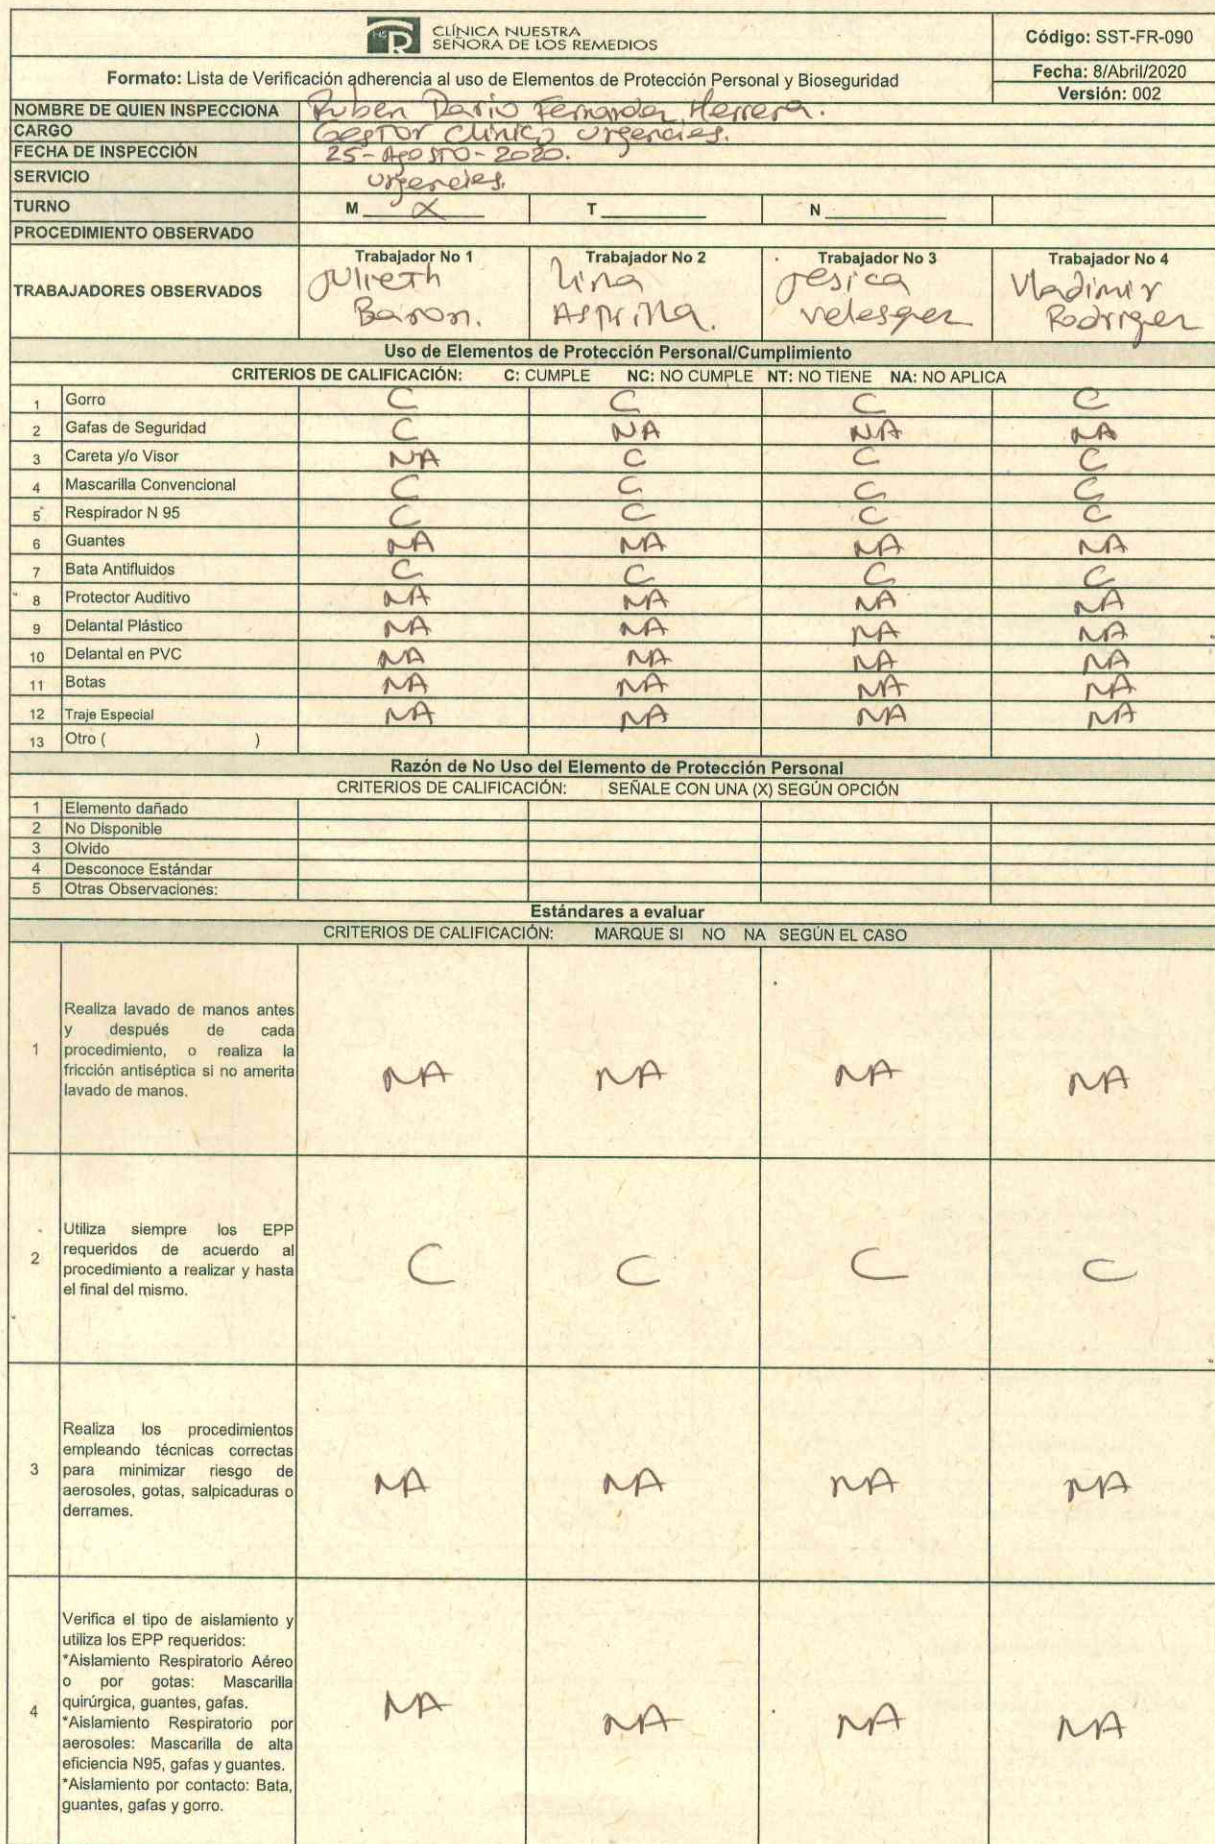 CLÍNICA NUESTRA
SEÑORA DE LOS REMEDIOS
Código: SST-FR-090
Formato: Lista de Verificación adherencia al uso de Elementos de Protección Personal y Bioseguridad
Fecha: 8/Abril/2020
Versión: 002
NOMBRE DE QUIEN INSPECCIONA Ruben Dario Fernandez Herrera.
CARGO Gestor Clinico Urgencias.
FECHA DE INSPECCIÓN 25-Agosto-2020.
SERVICIO Urgencias.
TURNO M X T N
PROCEDIMIENTO OBSERVADO
TRABAJADORES OBSERVADOS
Trabajador No 1 Trabajador No 2 Trabajador No 3 Trabajador No 4
Julieth Lina Jesica Vladimir
Baron. Asprilla. Velasquez Rodriguez
Uso de Elementos de Protección Personal/Cumplimiento
CRITERIOS DE CALIFICACIÓN: C: CUMPLE NC: NO CUMPLE NT: NO TIENE NA: NO APLICA
1 Gorro C C C C
2 Gafas de Seguridad C NA NA NA
3 Careta y/o Visor NA C C C
4 Mascarilla Convencional C C C C
5 Respirador N 95 C C C C
6 Guantes NA NA NA NA
7 Bata Antifluidos C C C C
8 Protector Auditivo NA NA NA NA
9 Delantal Plástico NA NA NA NA
10 Delantal en PVC NA NA NA NA
11 Botas NA NA NA NA
12 Traje Especial NA NA NA NA
13 Otro ( )
Razón de No Uso del Elemento de Protección Personal
CRITERIOS DE CALIFICACIÓN: SEÑALE CON UNA (X) SEGÚN OPCIÓN
1 Elemento dañado
2 No Disponible
3 Olvido
4 Desconoce Estándar
5 Otras Observaciones:
Estándares a evaluar
CRITERIOS DE CALIFICACIÓN: MARQUE SI NO NA SEGÚN EL CASO
1
Realiza lavado de manos antes
y después de cada
procedimiento, o realiza la
fricción antiséptica si no amerita
lavado de manos.
NA NA NA NA
2
Utiliza siempre los EPP
requeridos de acuerdo al
procedimiento a realizar y hasta
el final del mismo.
C C C C
3
Realiza los procedimientos
empleando técnicas correctas
para minimizar riesgo de
aerosoles, gotas, salpicaduras o
derrames.
NA NA NA NA
4
Verifica el tipo de aislamiento y
utiliza los EPP requeridos:
*Aislamiento Respiratorio Aéreo
o por gotas: Mascarilla
quirúrgica, guantes, gafas.
*Aislamiento Respiratorio por
aerosoles: Mascarilla de alta
eficiencia N95, gafas y guantes.
*Aislamiento por contacto: Bata,
guantes, gafas y gorro.
NA NA NA NA